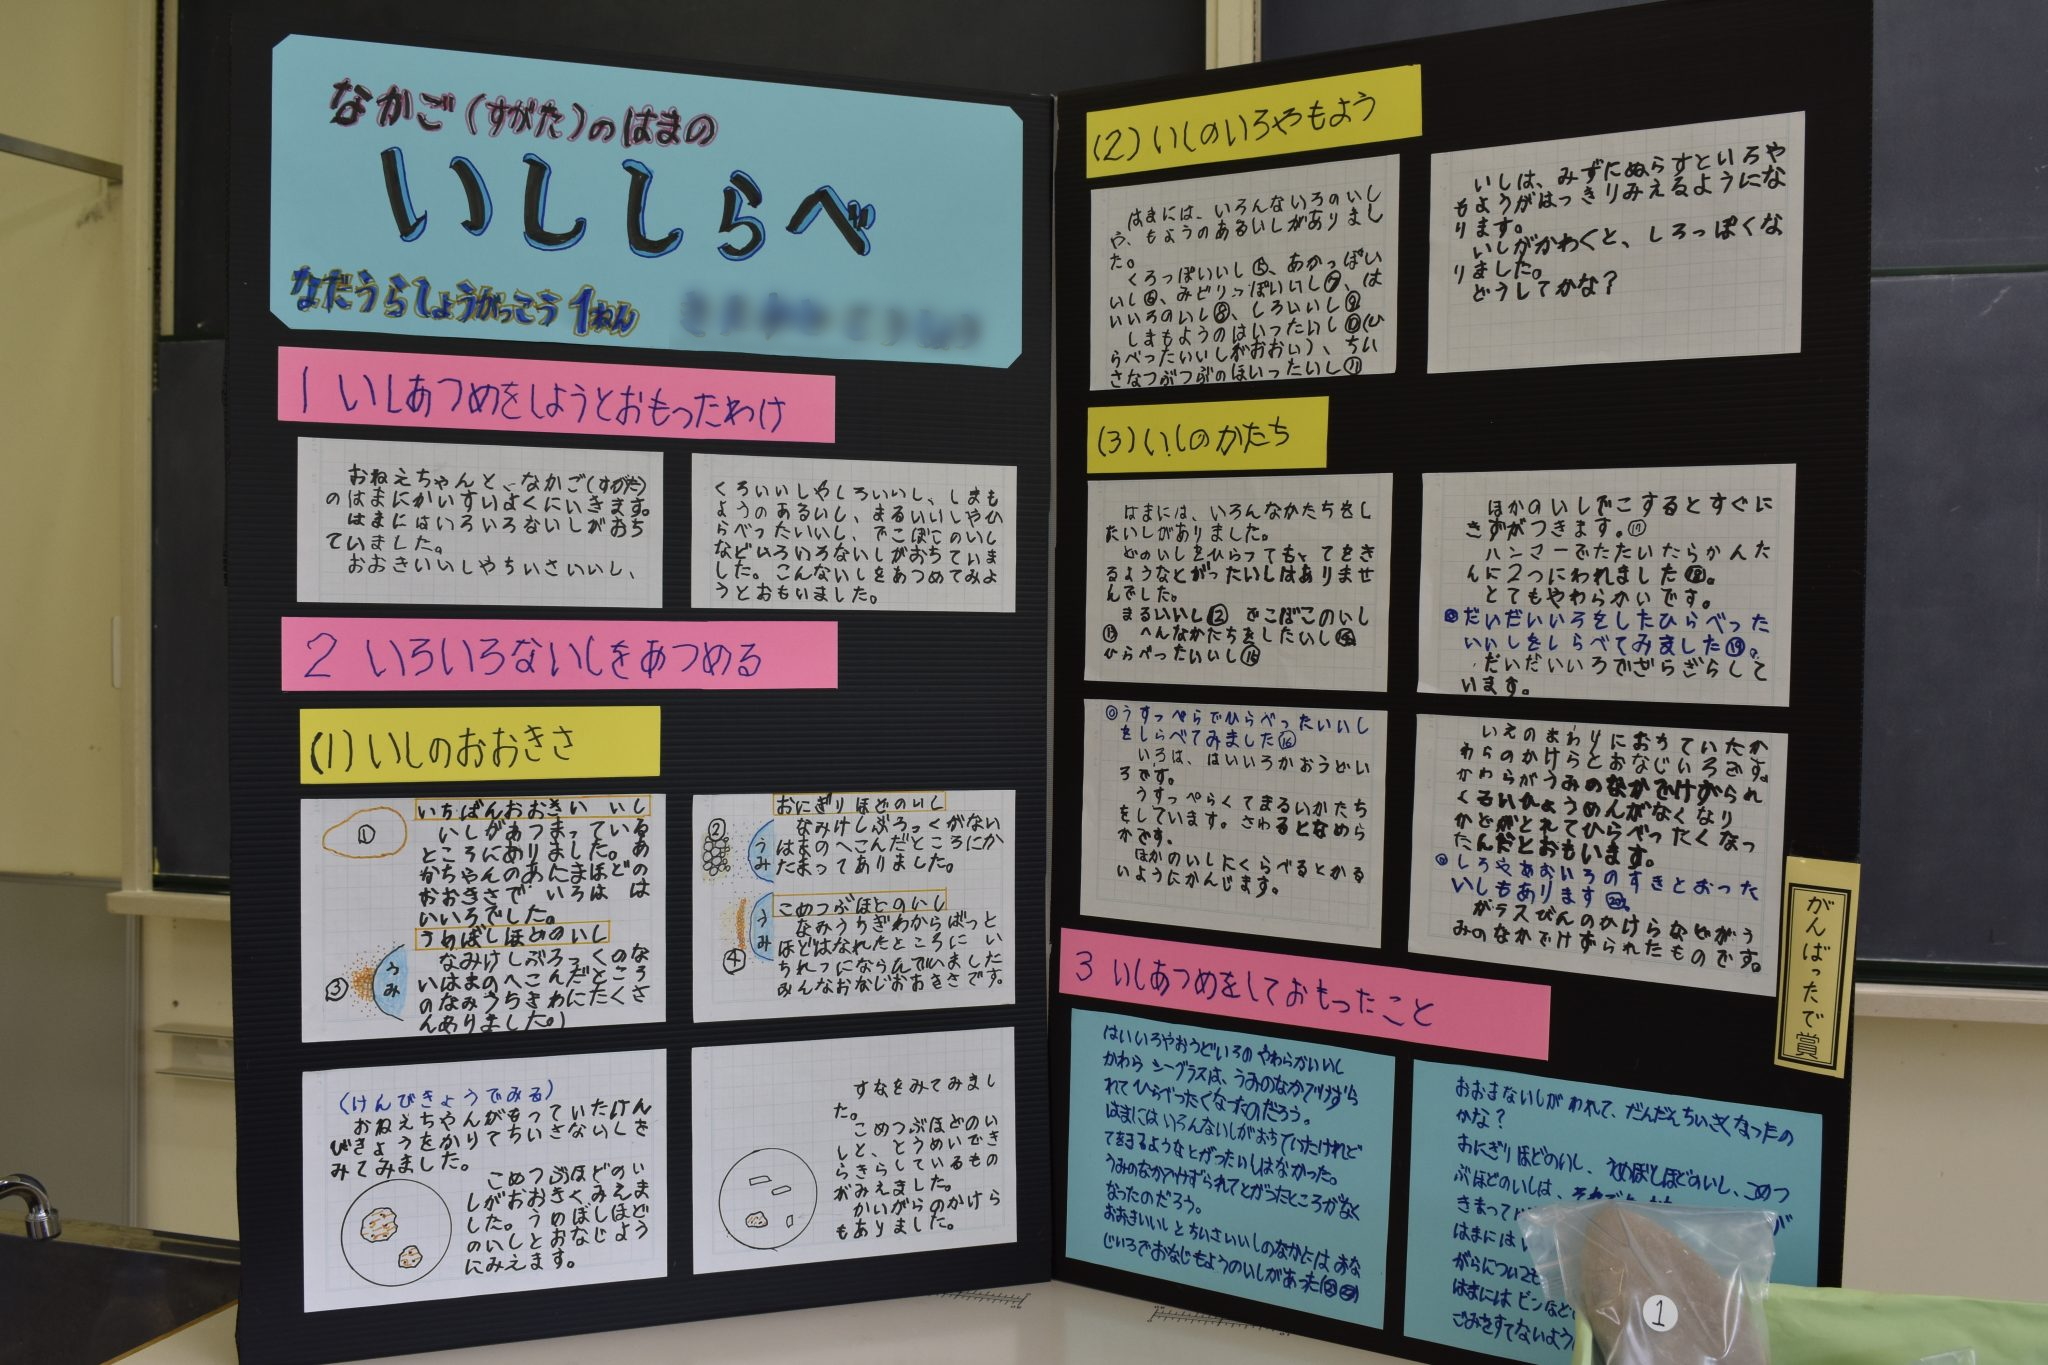 なかご(すがた)のはまの
いししらべ
なだうらしょうがっこう 1ねん
1 いしあつめをしようとおもったわけ
おねえちゃんと、なかご(すがた)
のはまにかいすいよくにいきます。
はまにはいろいろないしがおち
ていました。
おおきいいしやちいさいいし、
くろいいしやしろいいし、しまも
ようのあるいし、まるいいしやひ
らべったいいし、でこぼこのいし
などいろいろないしがおちていま
した。こんないしをあつめてみよ
うとおもいました。
2 いろいろないしをあつめる
(1)いしのおおきさ
①
いちばんおおきい いし
いしがあつまっている
ところにありました。あ
かちゃんのあたまほどの
おおきさで いろは は
いいろでした。
うめぼしほどのいし
なみけしぶろっくのな
いはまのへこんだところ
のなみうちきわにたくさ
んありました。)
③
うみ
②
うみ
おにぎりほどのいし
なみけしぶろっくがない
はまのへこんだところにか
たまってありました。
こめつぶほどのいし
なみうちぎわからばっと
ほどはなれたところに い
ちれつにならんでいました
みんなおなじおおきさです。
うみ
④
(けんびきょうでみる)
おねえちゃんがもっていたけん
びきょうをかりてちいさないしを
みてみました。
こめつぶほどのい
しがおおきくみえま
した。うめぼしほど
のいしとおなじよう
にみえます。
すなをみてみまし
た。
こめつぶほどのい
しと、とうめいでき
らきらしているもの
がみえました。
かいがらのかけら
もありました。
(2)いしのいろやもよう
はまには、いろんないろのいし
や、もようのあるいしがありまし
た。
くろっぽいいし⑤、あかっぽい
いし⑥、みどりっぽいいし⑦、は
いいろのいし⑧、しろいいし⑨
しまもようのはいったいし⑩(ひ
らべったいいしがおおい)、ちい
さなつぶつぶのはいったいし⑪
いしは、みずにぬらすといろや
もようがはっきりみえるようにな
ります。
いしがかわくと、しろっぽくな
りました。
どうしてかな?
(3)いしのかたち
はまには、いろんなかたちをし
たいしがありました。
どのいしをひらっても、てをき
るようなとがったいしはありませ
んでした。
まるいいし⑫ でこぼこのいし
⑬ へんなかたちをしたいし⑭
ひらべったいいし⑯
ほかのいしでこするとすぐに
きずがつきます。⑰
ハンマーでたたいたらかんた
んに2つにわれました⑱。
とてもやわらかいです。
◎だいだいいろをしたひらべった
いいしをしらべてみました⑲。
だいだいいろでざらざらして
います。
◎うすっぺらでひらべったいいし
をしらべてみました⑯
いろは、はいいろかおうどい
ろです。
うすっぺらくてまるいかたち
をしています。さわるとなめら
かです。
ほかのいしにくらべるとかる
いようにかんじます。
いえのまわりにおちていたか
わらのかけらとおなじいろです。
かわらがうみのなかでけずられ
くろいひょうめんがなくなり
かどがとれてひらべったくなっ
たんだとおもいます。
◎しろやあおいろのすきとおった
いしもあります⑳。
がラスびんのかけらなどがう
みのなかでけずられたものです。
がんばったで賞
3 いしあつめをしておもったこと
はいいろやおうどいろのやわらかいいし
かわら シーグラスは、うみのなかでけずら
れてひらべったくなったのだろう。
はまにはいろんないしがおちていたけれど
てをきるようなとがったいしはなかった。
うみのなかでけずられてとがったところがなく
なったのだろう。
おおきいいしとちいさいいしのなかには おな
じいろでおなじもようのいしがあった
おおきないしがわれて、だんだんちいさくなったの
かな?
おにぎりほどのいし、うめぼしほどのいし、こめつ
ぶほどのいしは、
きまって
はまには
がらについても
はまにはビンなど
ごみをすてないよう
1